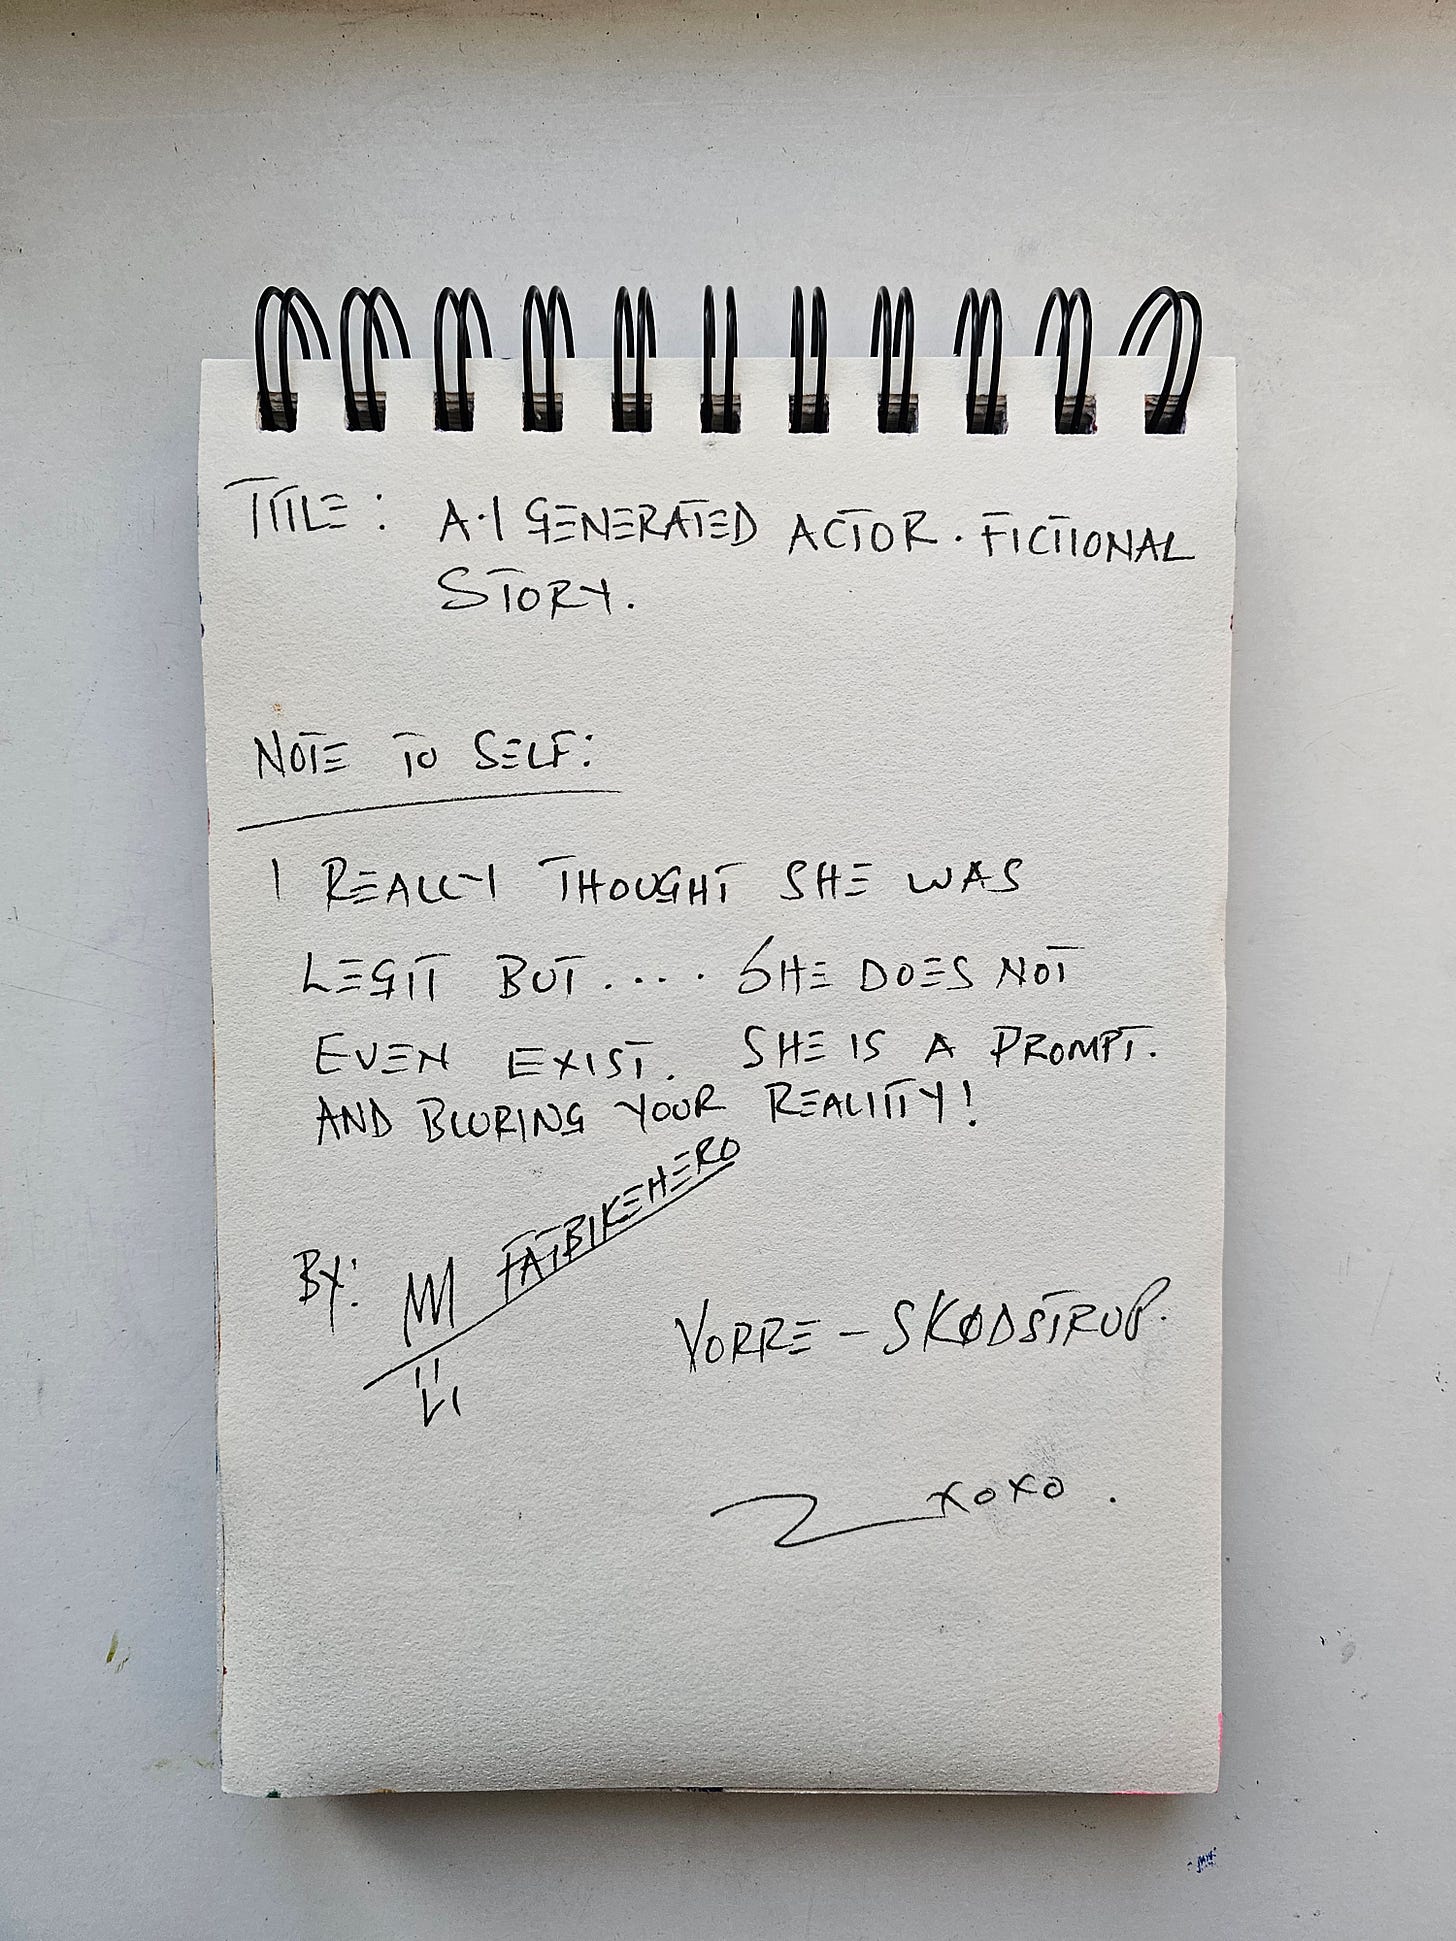 TITLE: A.I GENERATED ACTOR. FICTIONAL
STORY.
NOTE TO SELF:
I REALLY THOUGHT SHE WAS
LEGIT BUT.... SHE DOES NOT
EVEN EXIST. SHE IS A PROMPT.
AND BLURING YOUR REALITY!
BY: FATBIKEHERO
VORRE - SKØDSTRUP.
XOXO.